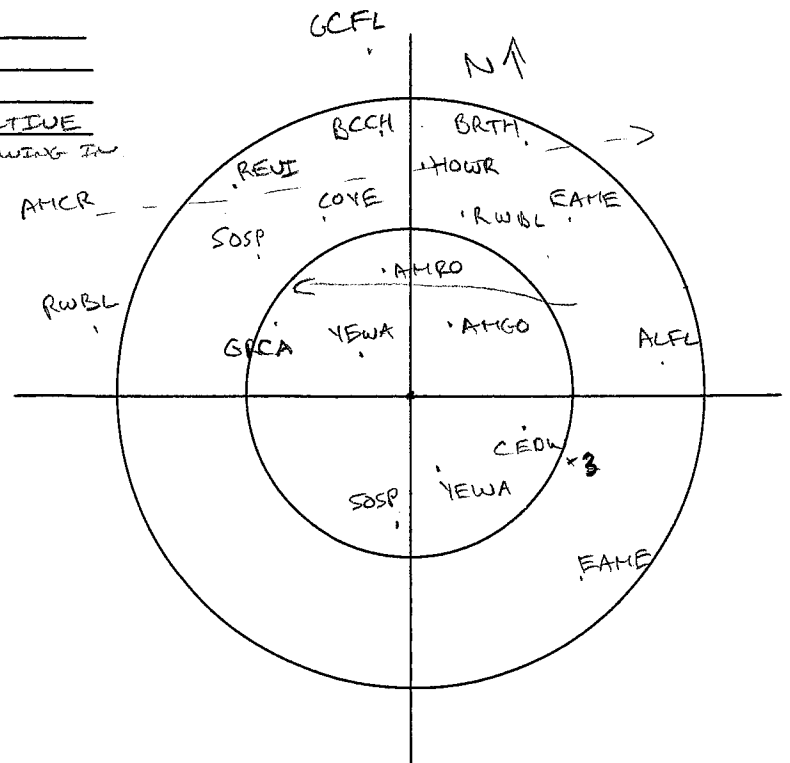 GCFL
N
TIVE
WING IN
BCCH BRTH
REVI HOWR
AMCR COYE RWBL EAME
SOSP
AMRO
RWBL
GRCA YEWA AMGO ALFL
CEDW
×3
SOSP YEWA
EAME